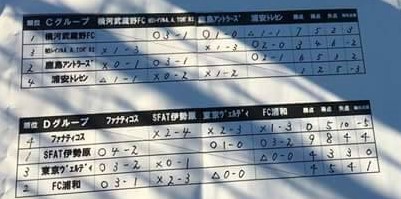 順位 Cグループ 横河武蔵野FC 鹿島アントラーズ 浦安トレセン 勝点 得点 失点
1 横河武蔵野FC ○3-1 ○1-0 △1-1 7 5 2 3
3 ×1-3 ○2-0 3 4 6 -2
2 鹿島アントラーズ ×0-1 ○3-1 ○2-1 6 5 3 2
4 浦安トレセン △1-1 ×0-2 ×1-2 1 2 5 -3
順位 Dグループ ファナティコス SFAT伊勢原 東京ヴェルディ FC浦和 勝点 得点 失点
4 ファナティコス ×2-4 ×2-3 ×1-3 0 5 10 -5
1 SFAT伊勢原 ○4-2 ○1-0 ○3-2 9 8 4 4
3 東京ヴェルディ ○3-2 ×0-1 △0-0 4 3 3 0
2 FC浦和 ○3-1 ×2-3 △0-0 4 5 4 1